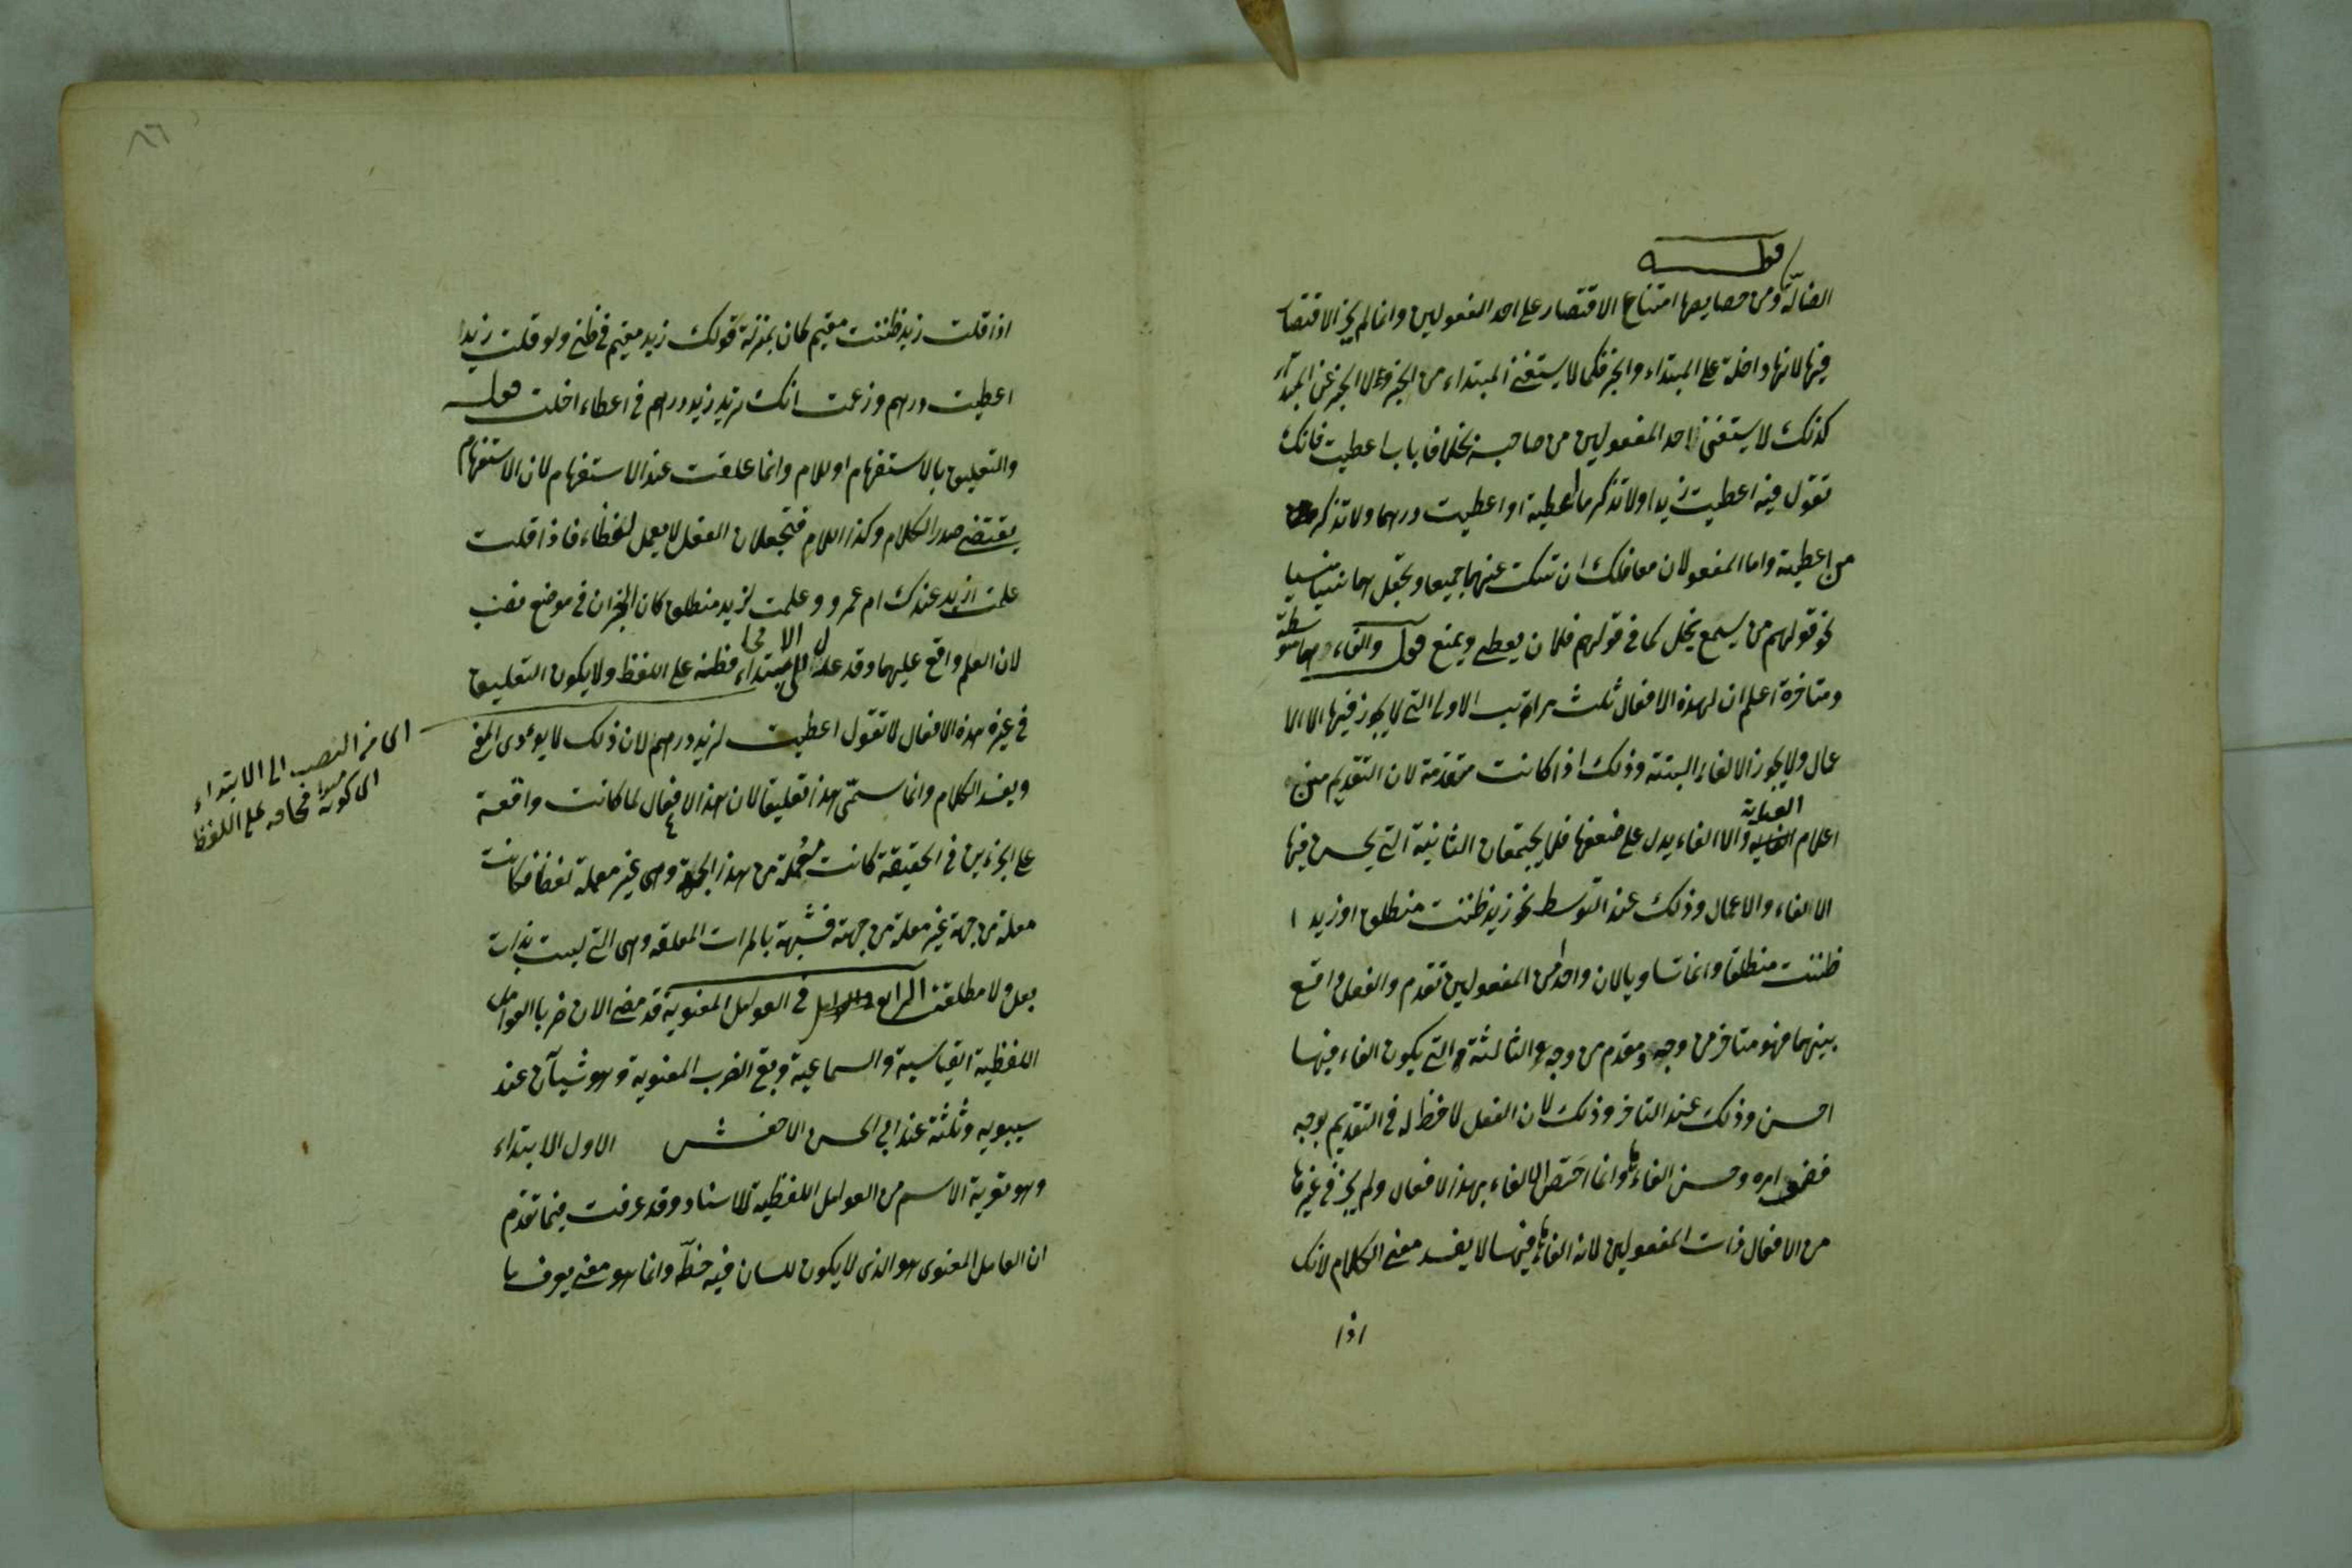 قولـــه
الضالّة ومن خصايصها امتناع الاقتصار على احد المفعولين وانما لم يجز الاقتصار
فيها لانها داخلة على المبتداء والخبر فكما لا يستغنى المبتداء من الخبر ولا الخبر عن المبتدا
كذلك لا يستغنى احد المفعولين من صاحبه بخلاف باب اعطيت فانك
تقول فيه اعطيت زيدا ولا تذكر ما اعطيته او اعطيت درهما ولا تذكر
من اعطيته واما المفعولان معا فلك ان تسكت عنهما جميعا وتجعلهما نسيا منسيا
نحو قولهم من يسمع يخل كما فى قولهم فلان يعطى ويمنع قوله والغاءها متوسطة
ومتاخرة اعلم ان لهذه الافعال ثلث مراتب الاولى التى لا يجوز فيها الا الا
عمال ولا يجوز الالغاء البتة وذلك اذا كانت متقدمة لان التقديم من
العناية
اعلام والالغاء يدل على ضعفها فلا يجتمعان الثانية التى يحسن فيها
الالغاء والاعمال وذلك عند التوسط نحو زيد ظننت منطلق او زيدا
ظننت منطلقا وانما تساويا لان واحدا من المفعولين تقدم والفعل واقع
بينهما فهو متاخر من وجه ومقدم من وجه والثالثة التى يكون الغاء فيها
احسن وذلك عند التاخر وذلك لان الفعل لا حظ له فى التقديم بوجه
فضعف امره وحسن الغاءها وانما اختص الالغاء بهذه الافعال ولم يجز فى غيرها
من الافعال ذات المفعولين لانه الغاءها فيها لا يفسد معنى الكلام لانك
اذا
٨٦
اذا قلت زيد ظننت مقيم كان بمنزلة قولك زيد مقيم فى ظنى ولو قلت زيدا
اعطيت درهم وزعمت انك تريد زيد درهم فى اعطاء اخلت قوله
والتعليق بالاستفهام او اللام وانما علقت عند الاستفهام لان الاستفهام
يقتضى صدر الكلام وكذا اللام فتجعلان الفعل لا يعمل لفظا فاذا قلت
علمت ازيد عندك ام عمرو وعلمت لزيد منطلق كان الجزان فى موضع نصب
لان العلم واقع عليهما وقد الابتداء على اللفظ ولا يكون التعليق
فى غير هذه الافعال لا تقول اعطيت لزيد درهم لان ذلك لا يودى المعنى
ويفسد الكلام وانما سمّى هذا تعليقا لان هذه الافعال لما كانت واقعة
على الجزءين فى الحقيقة كانت معملة من هذه الجهة وهى غير معملة لفظا فكانت
معملة من جهة غير معملة من جهة فشبهة بالمراة المعلقة وهى التى ليست بذات
بعل ولا مطلقة الرابع فى العوامل المعنوية قد مضى الان ضربا العوامل
اللفظية القياسية والسماعية وبقى الضرب المعنوية وهو شيآن عند
سيبويه وثلثة عند ابى الحسن الاخفش الاول الابتداء
وهو تعرية الاسم من العوامل اللفظية للاسناد وقد عرفت فيما تقدم
ان العامل المعنوى هو الذى لا يكون للسان فيه حظّ وانما هو معنى يعرف با
اى من النصب الى الابتداء
اى كونه مبتدا على اللفظ